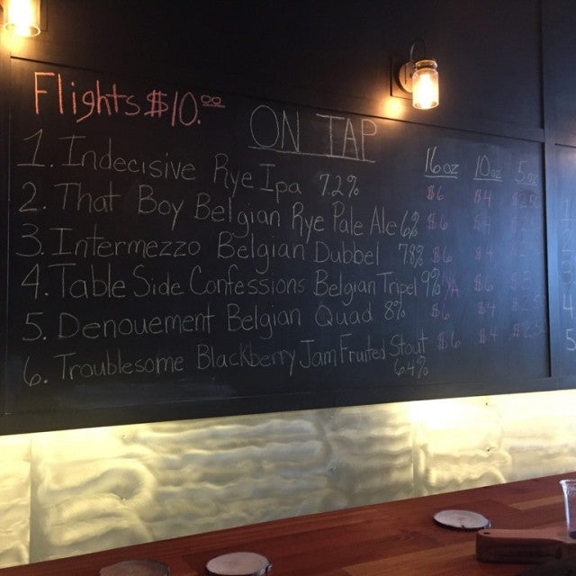 Flights $10.00
ON TAP
16oz 10oz 5oz
1. Indecisive Rye Ipa 7.2% $6 $4
2. That Boy Belgian Rye Pale Ale 6% $6 $4
3. Intermezzo Belgian Dubbel 7.8% $6 $4
4. Table Side Confessions Belgian Tripel 9% N/A $6
5. Denouement Belgian Quad 8% $6 $4
6. Troublesome Blackberry Jam Fruited Stout $6 $4
6.4%
4
5